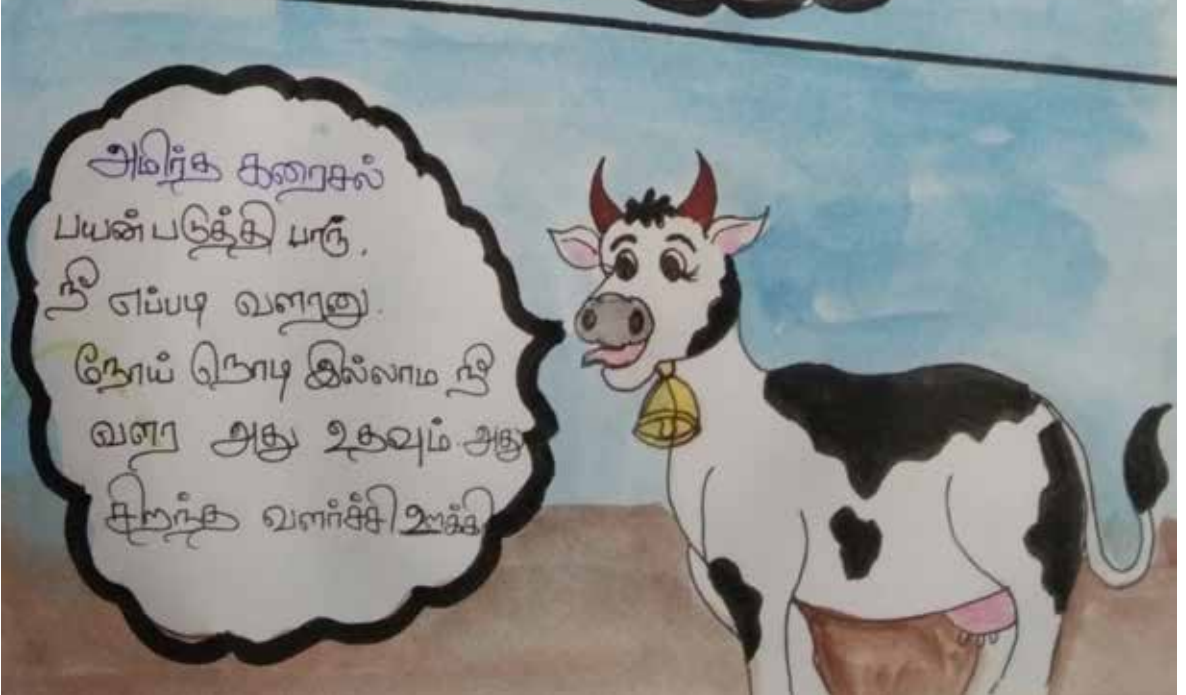 அமிர்த கரைசல்
பயன்படுத்தி பாரு.
நீ எப்படி வளரனு.
நோய் நொடி இல்லாம நீ
வளர அது உதவும். அது
சிறந்த வளர்ச்சி ஊக்கி